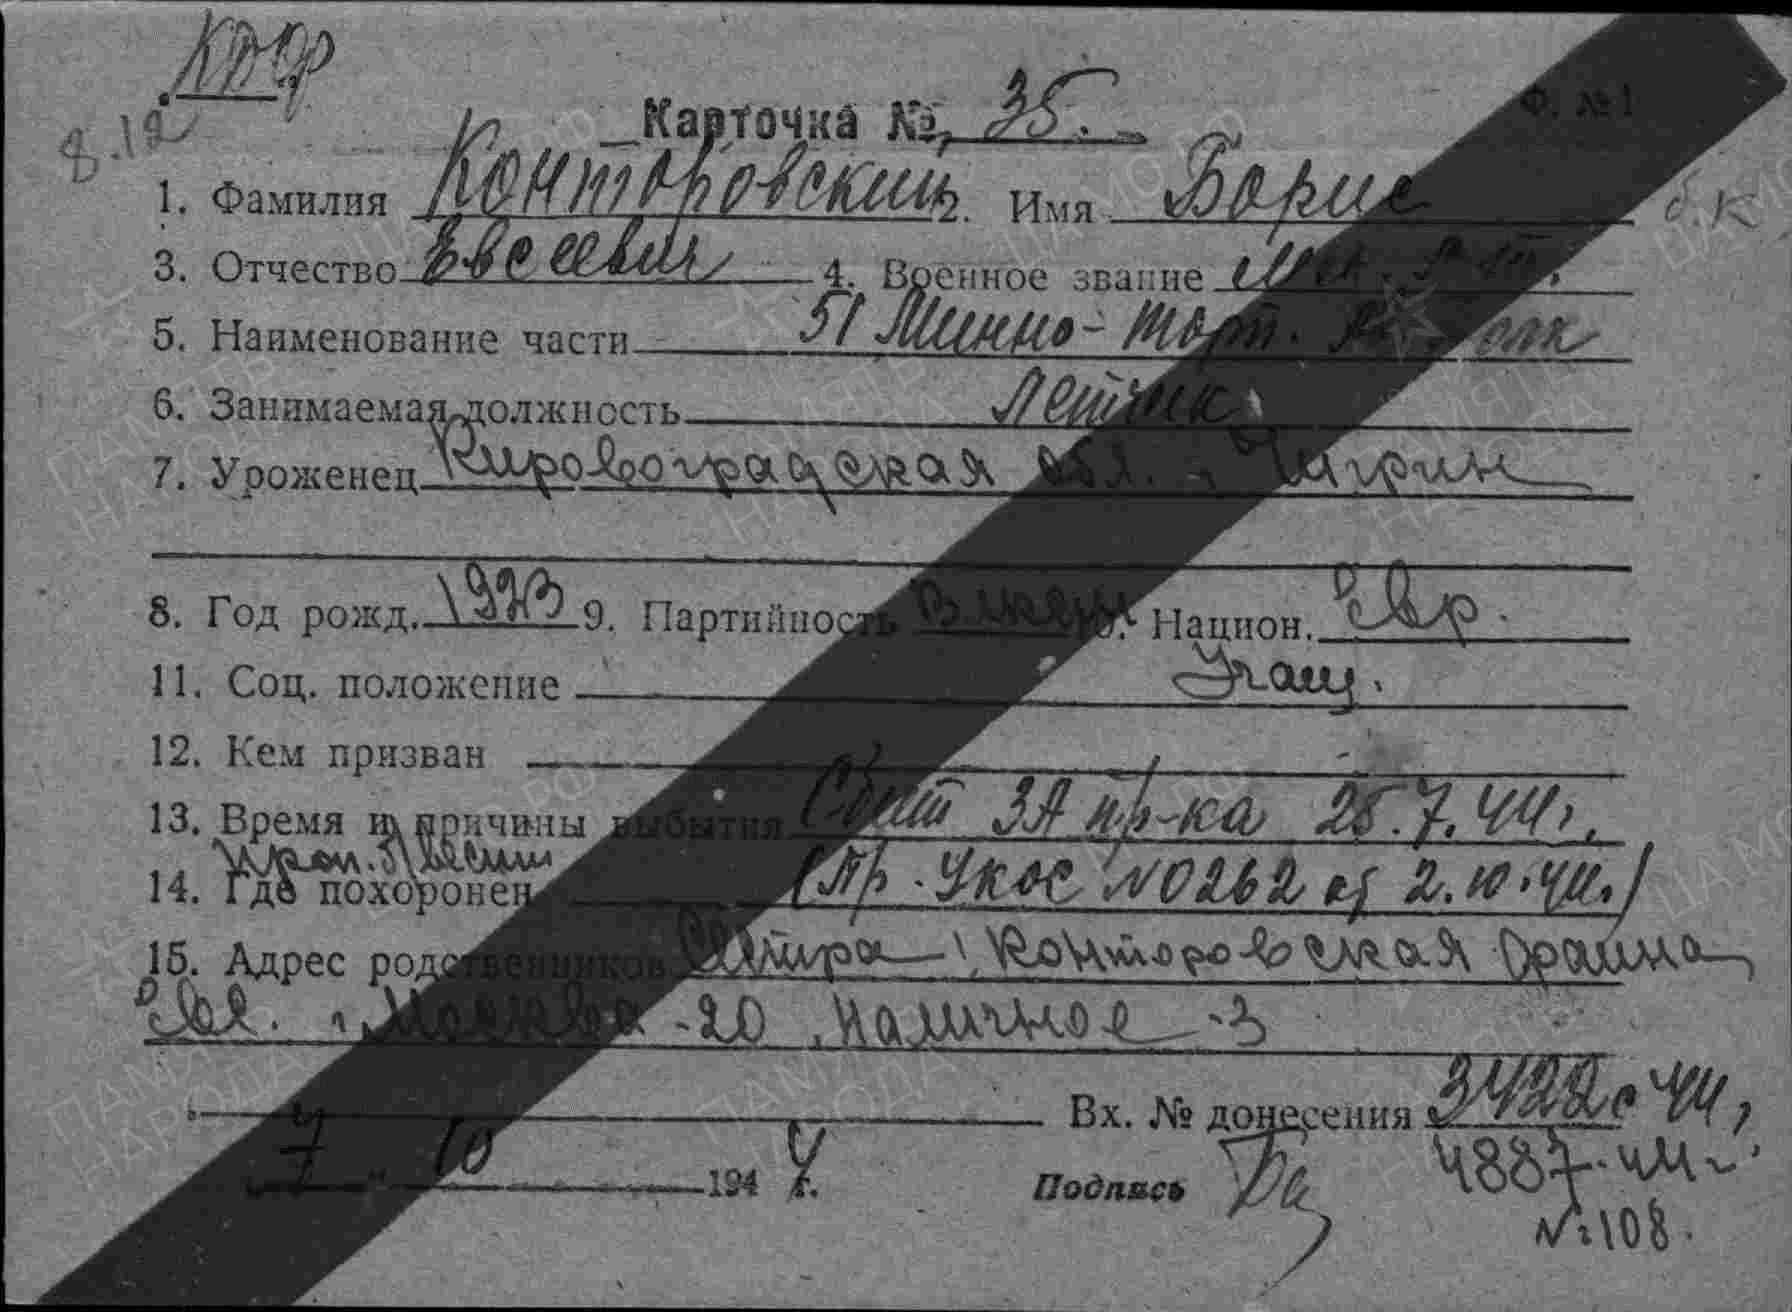 КПФ
8.12
Карточка № 35. Ф. № 1
1. Фамилия Конторовский 2. Имя Борис
3. Отчество Евсеевич 4. Военное звание мл.
5. Наименование части 51 Минно-торп.
6. Занимаемая должность Летчик
7. Уроженец Кировоградская обл. г. Чигрин
8. Год рожд. 1923 9. Партийность 10. Национ. Евр.
11. Соц. положение Учащ.
12. Кем призван
13. Время и причины выбытия Сбит ЗА пр-ка 25.7.44г.
14. Где похоронен (Пр. Укос №0262 от 2.10.44г.)
15. Адрес родственников сестра - Конторовская
г. Москва -20, -3
Вх. № донесения 3422с 44г
7 " 10 194 4 г. Подпись 4887-44г.
№ 108.